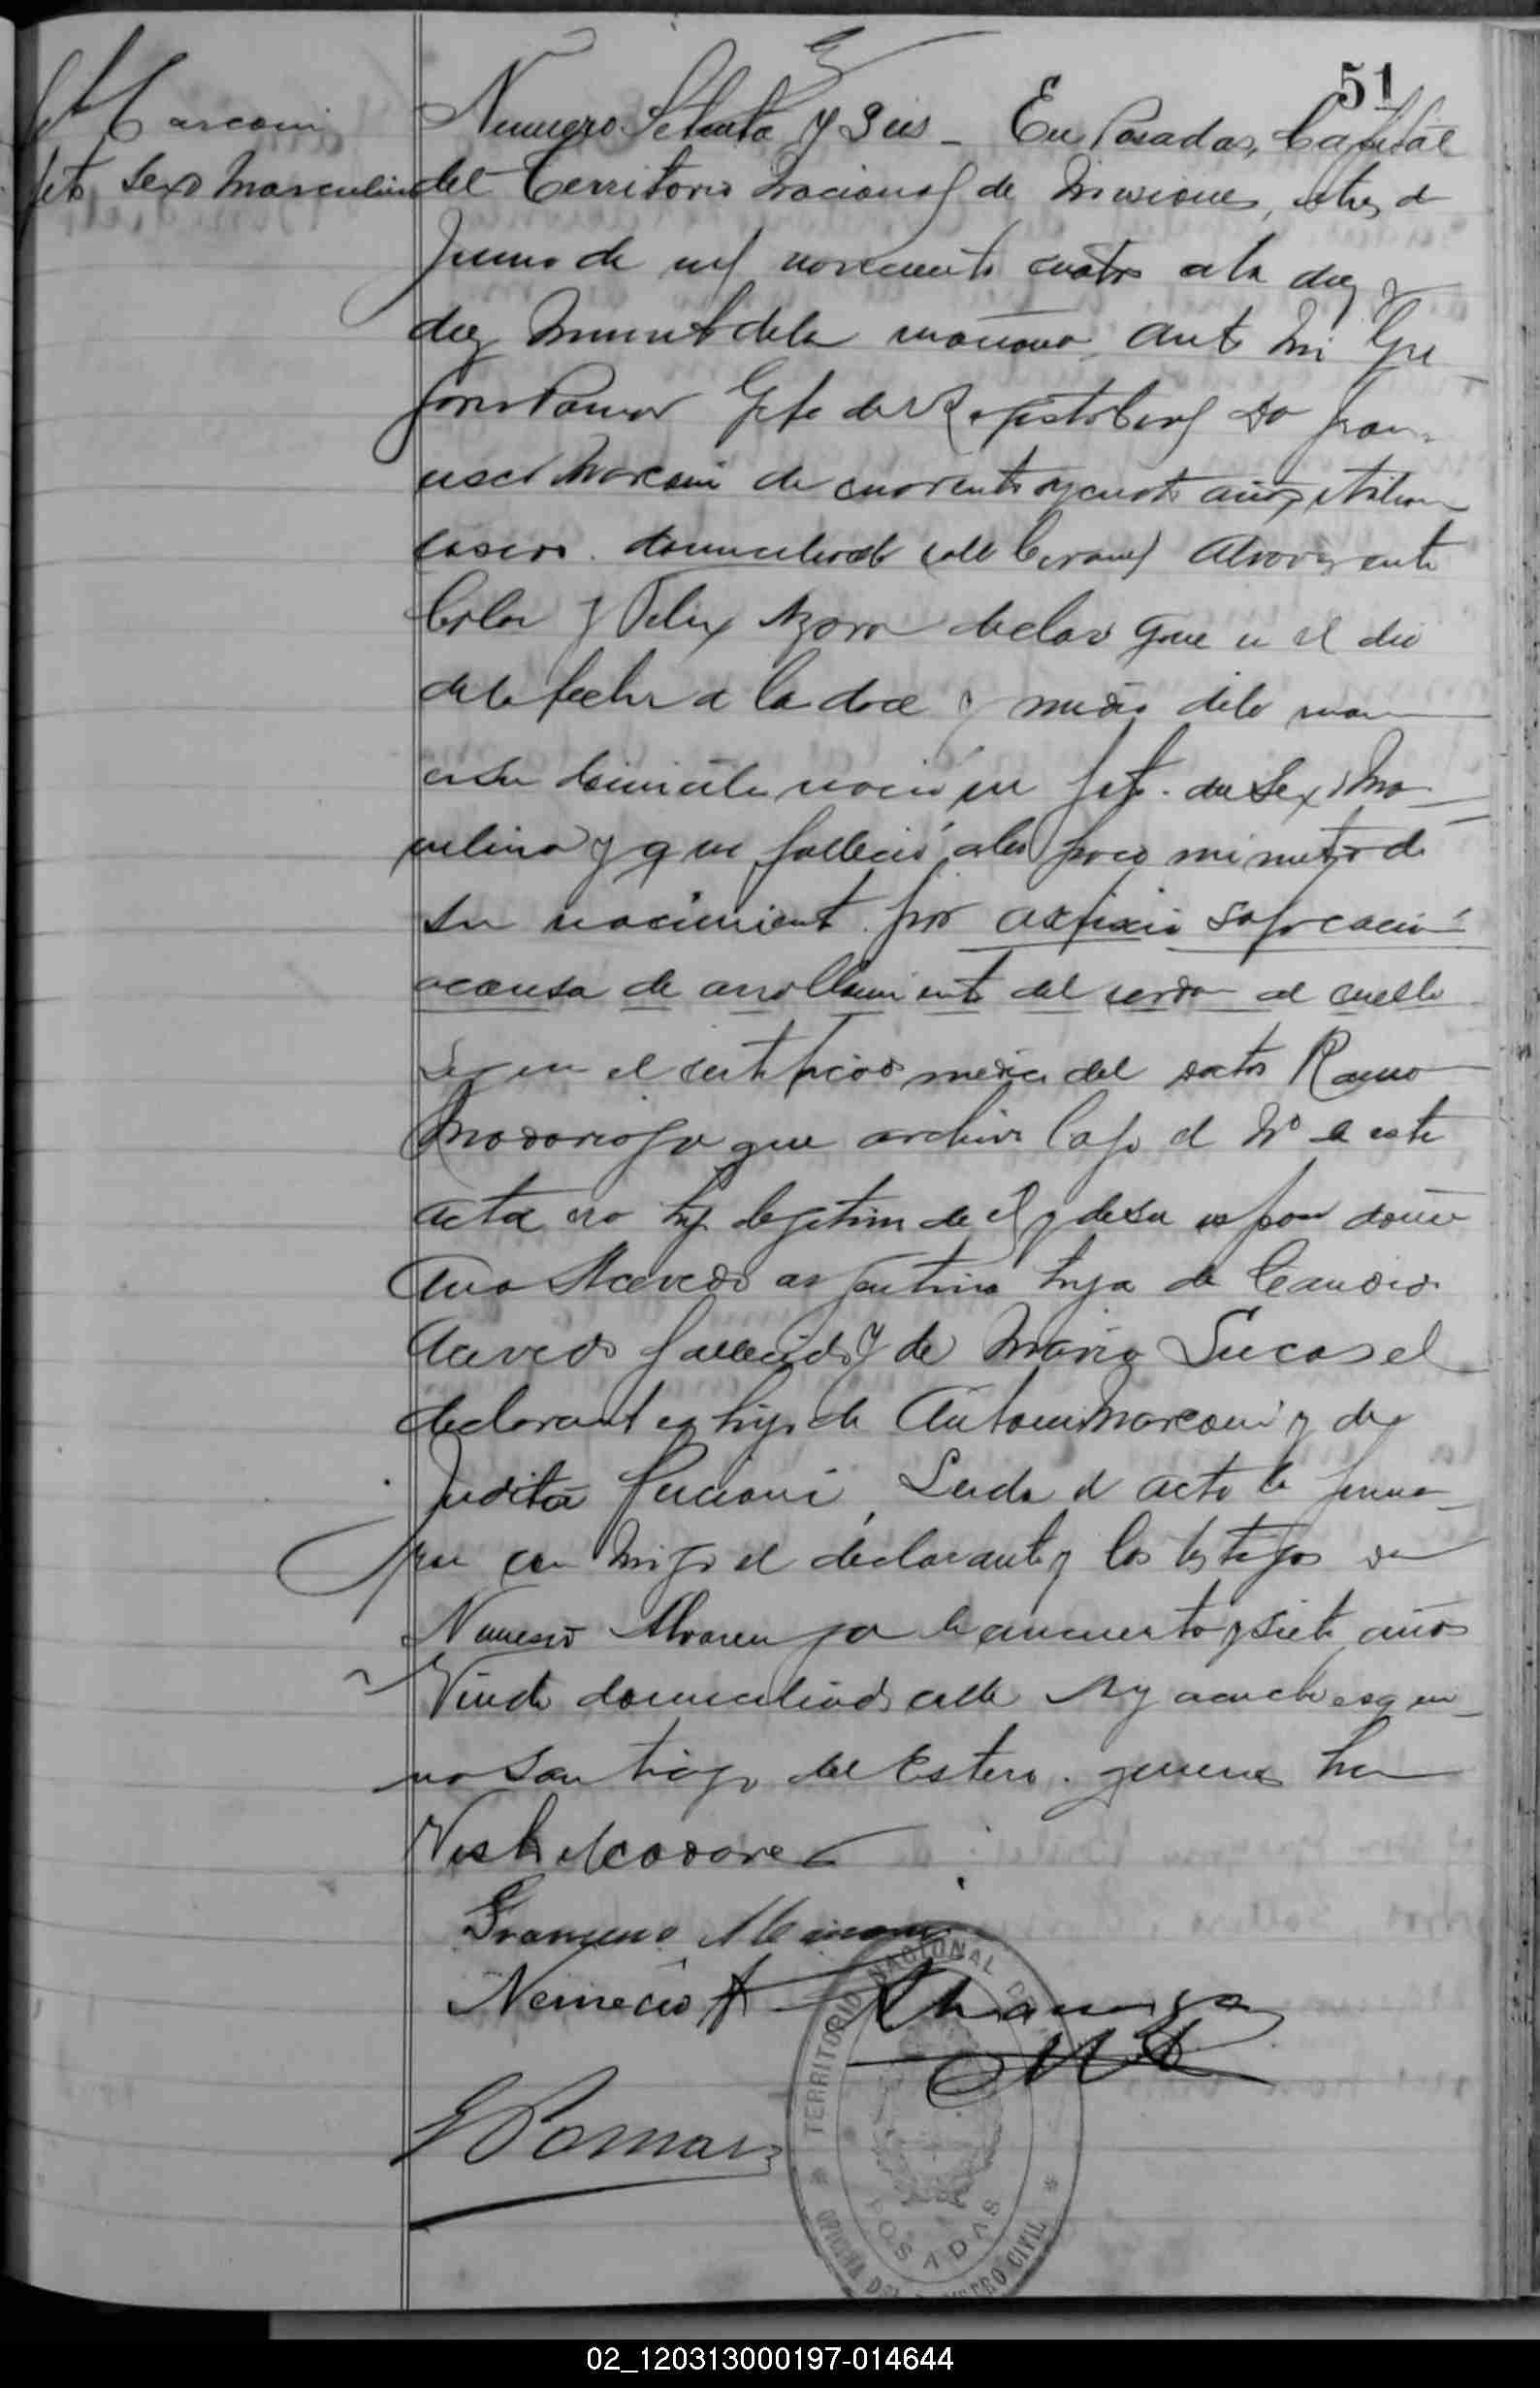 51
Marconi
feto sexo masculino
Numero Setenta y Seis _ En Posadas, Capital
del Territorio Nacional de Misiones, a tres de
Junio de mil novecientos cuatro a la diez y
diez minuts dela mañana ant mi Gre
gorio Pomar Gefe del Registro Civil Do Fran-
cisco Marconi de cuarenta y cuatro años, italian
casero. domiciliado calle entre
Colon y Felix Azara declaro que en el dia
dela fecha a la doce y media dela man
en su domicilio nacio un feto. de Sexo Mas
culino y que fallecio a los pocos minutos de
su nacimient por asfixia sofocacion
a causa de arrollamiento del cordon al cuello
segun el certificado medico del doctor Ramon
Madariaga que archivo bajo el No de este
acta era hijo legitimo de el y de su esposa doña
Ana Acevedo argentina hija de Candido
Acevedo fallecido y de Maria Lucas el
declarante es hijo de Antonio Marconi y de
Judita Leida el acta la firma
ron con migo el declarante y los testigos don
Nemesio Alvarenga de cincuenta y siete años
Viudo domiciliado calle Ayacucho esqui
na Santiago del Estero. quienes han
Visto el cadaver
Francisco Marconi
Nemecio A Alvarenga
G Pomar
TERRITORIO NACIONAL DE
OFICINA DEL REGISTRO CIVIL
POSADAS
02_120313000197-014644